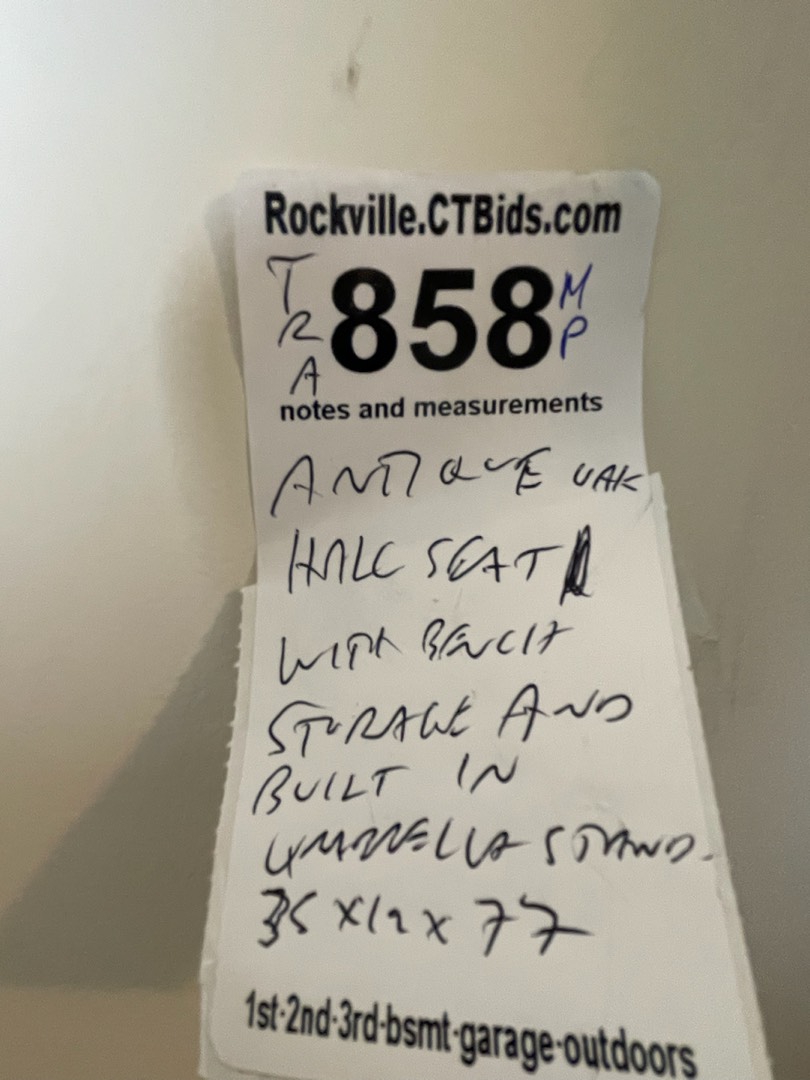 Rockville.CTBids.com
TRA 858 MP
notes and measurements
ANTIQUE OAK
HALL SEAT
WITH BENCH
STORAGE AND
BUILT IN
UMBRELLA STAND.
35 x 12 x 77
1st·2nd·3rd·bsmt·garage·outdoors